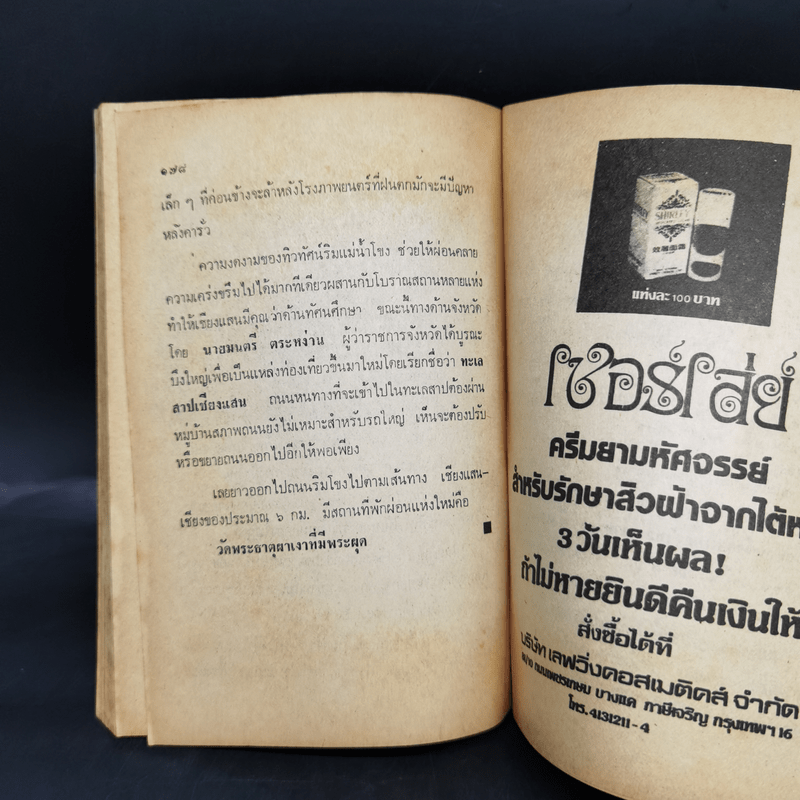 ๑๗๘
เล็ก ๆ ที่ค่อนข้างจะล้าหลังโรงภาพยนตร์ที่ฝนตกมักจะมีปัญหา
หลังคารั่ว
ความงดงามของทิวทัศน์ริมแม่น้ำโขง ช่วยให้ผ่อนคลาย
ความเคร่งขรึมไปได้มากทีเดียวผสานกับโบราณสถานหลายแห่ง
ทำให้เชียงแสนมีคุณว่าด้านทัศนศึกษา ขณะนี้ทางด้านจังหวัด
โดย นายมนตรี ตระหง่าน ผู้ว่าราชการจังหวัดได้บูรณะ
บึงใหญ่เพื่อเป็นแหล่งท่องเที่ยวขึ้นมาใหม่โดยเรียกชื่อว่า ทะเล
สาปเชียงแสน ถนนหนทางที่จะเข้าไปในทะเลสาปต้องผ่าน
หมู่บ้านสภาพถนนยังไม่เหมาะสำหรับรถใหญ่ เห็นจะต้องปรับ
หรือขยายถนนออกไปอีกให้พอเพียง
เลยยาวออกไปถนนริมโขงไปตามเส้นทาง เชียงแสน-
เชียงของประมาณ ๖ กม. มีสถานที่พักผ่อนแห่งใหม่คือ
วัดพระธาตุผาเงาที่มีพระผุด
SHIRLEY
แท่งละ 100 บาท
เชอร์เล่ย์
ครีมยามหัศจรรย์
สำหรับรักษาสิวฝ้าจากไต้ห
3 วันเห็นผล!
ถ้าไม่หายยินดีคืนเงินให้
สั่งซื้อได้ที่
บริษัท เลฟวิ่งคอสเมติคส์ จำกัด
ถนนเพชรเกษม บางแค ภาษีเจริญ กรุงเทพฯ 16
โทร. 4131211-4